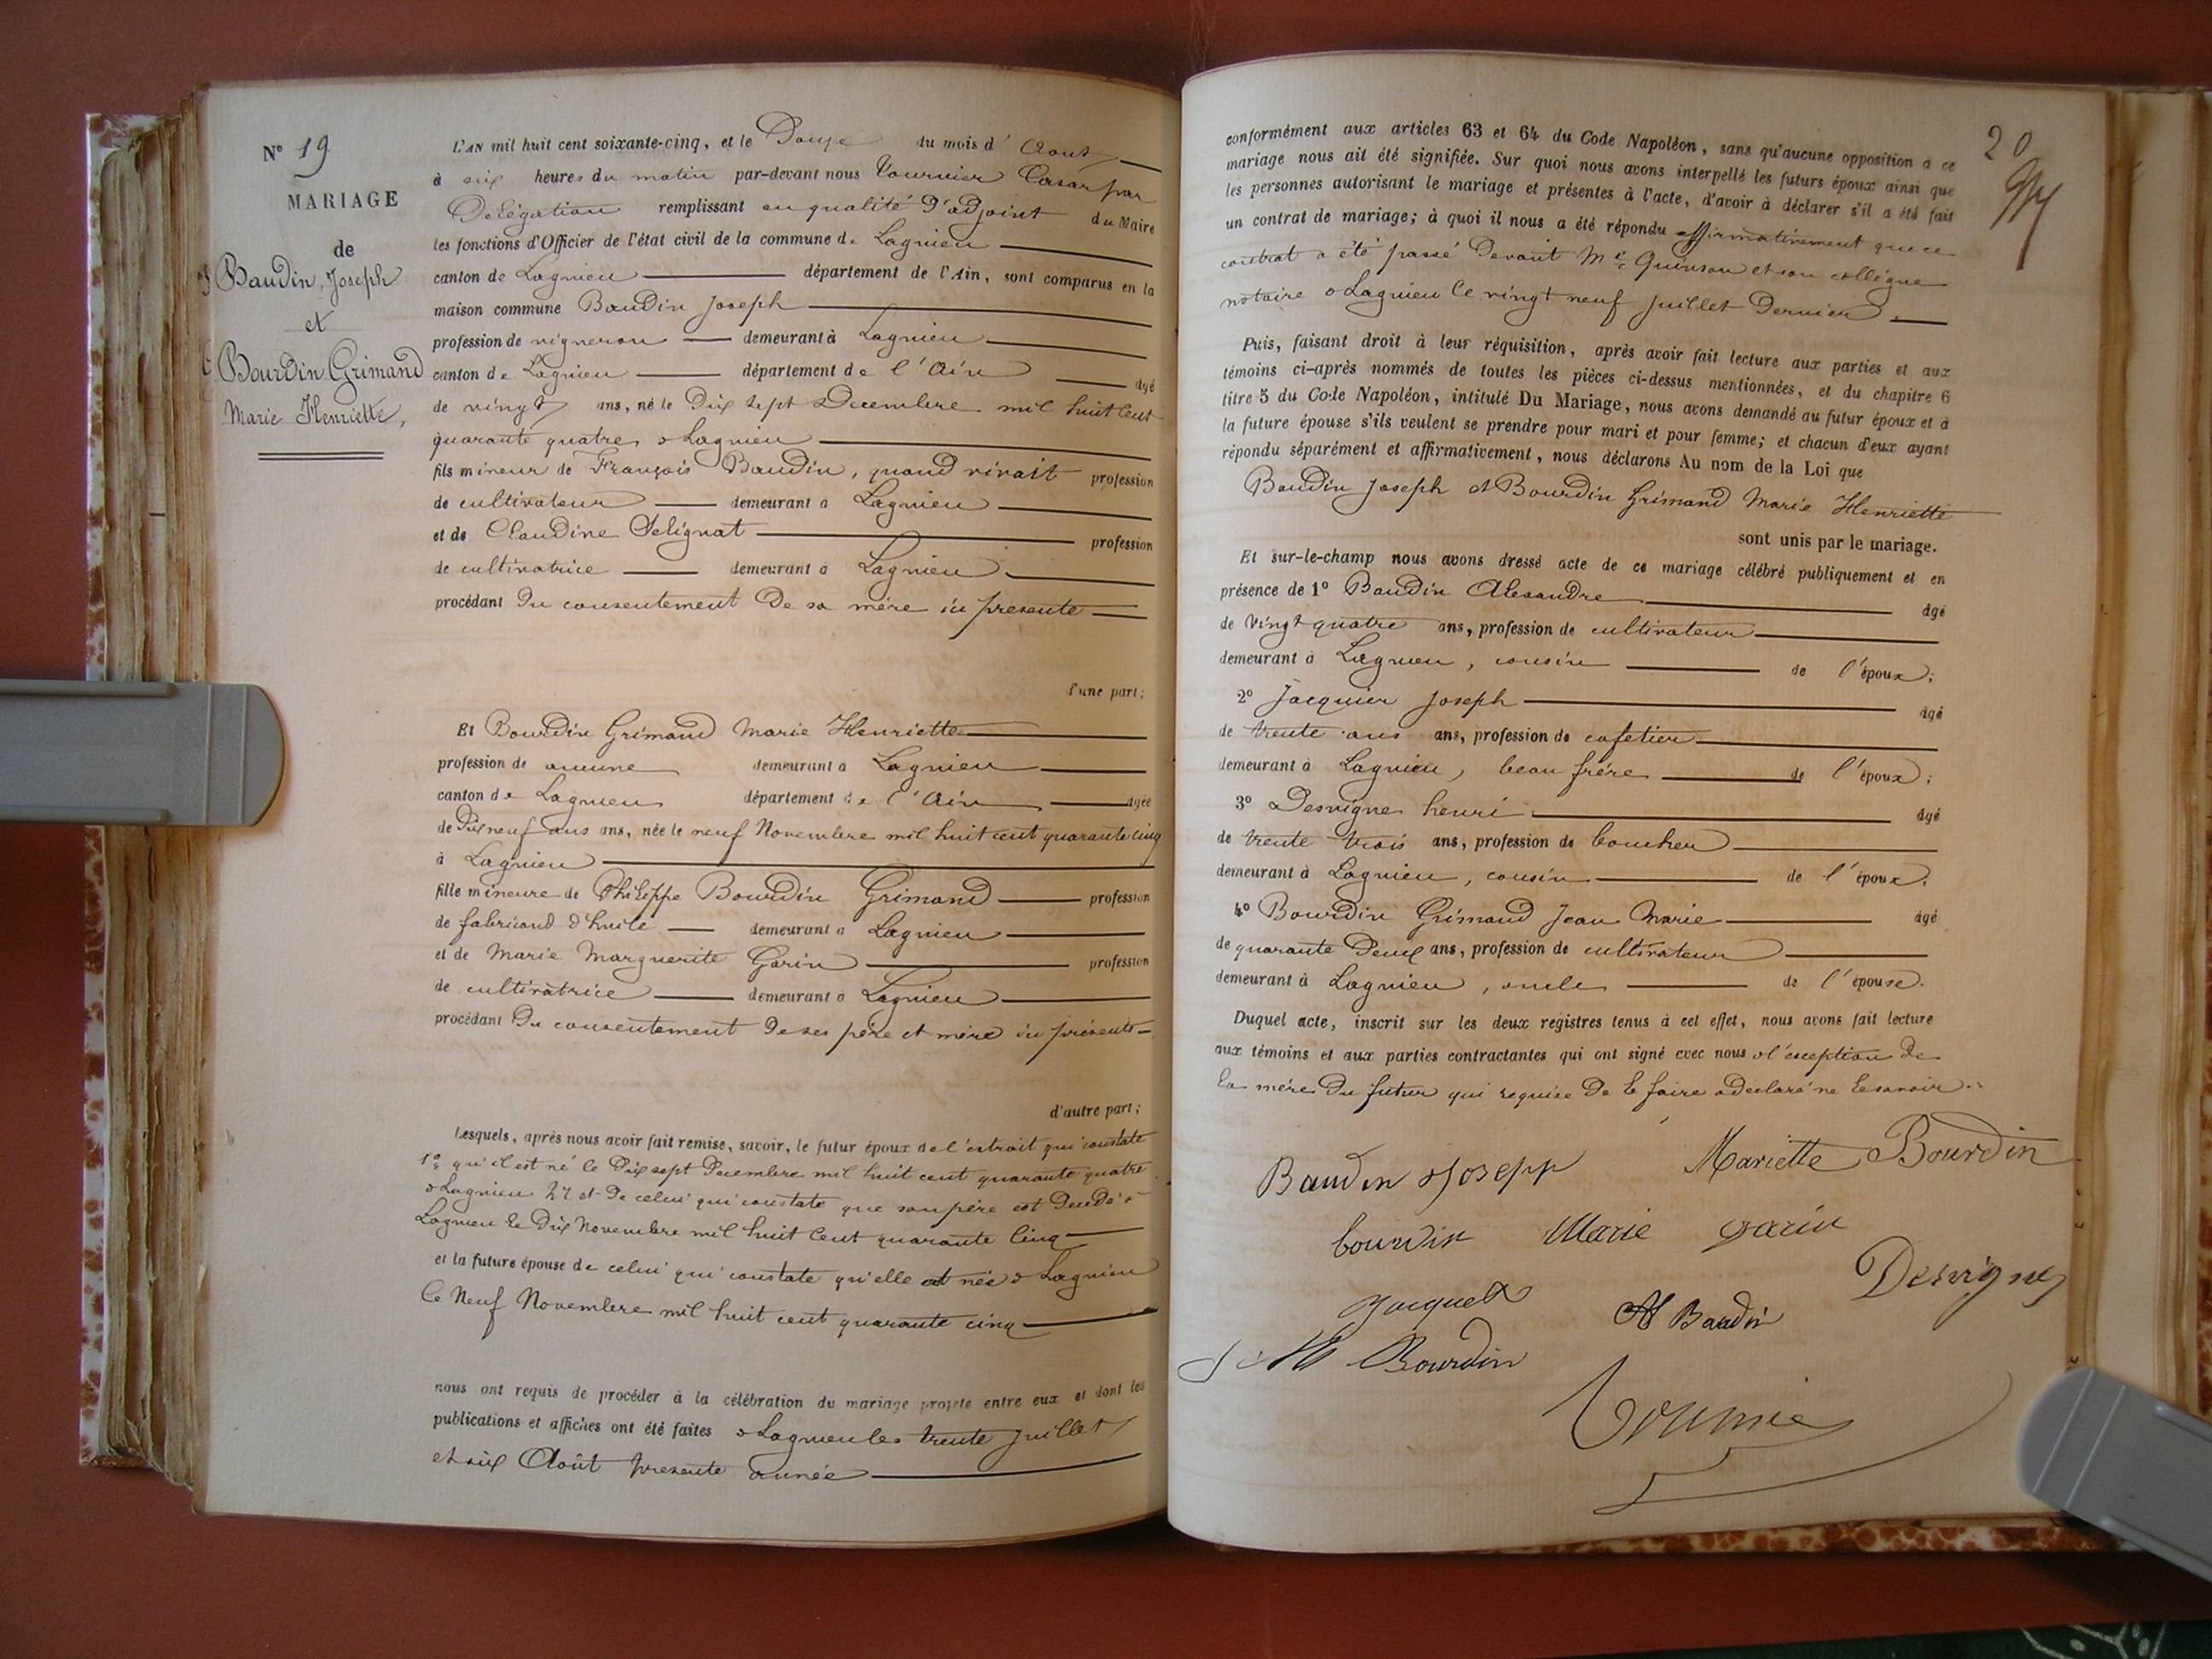 N° 19
MARIAGE
de
Baudin Joseph
et
Bourdin Grimand
Marie Henriette,
L'AN mil huit cent soixante-cinq, et le Douze du mois d' Aout
à six heures du matin par-devant nous Tournier César par
Délégation remplissant en qualité d'adjoint du Maire
les fonctions d'Officier de l'état civil de la commune de Lagnieu
canton de Lagnieu département de l'Ain, sont comparus en la
maison commune Baudin Joseph
profession de vigneron demeurant à Lagnieu
canton de Lagnieu département de l'Ain agé
de vingt ans, né le Dix sept Decembre mil huit cent
quarante quatre à Lagnieu
fils mineur de François Baudin, quand vivait profession
de cultivateur demeurant à Lagnieu
et de Claudine Selignat profession
de cultivatrice demeurant à Lagnieu
procédant du consentement de sa mère ici presente
d'une part;
Et Bourdin Grimand Marie Henriette
profession de aucune demeurant à Lagnieu
canton de Lagnieu département de l'Ain agée
de Dix neuf ans ans, née le neuf Novembre mil huit cent quarante cinq
à Lagnieu
fille mineure de Philippe Bourdin Grimand profession
de fabricand d'huile demeurant à Lagnieu
et de Marie Marguerite Garin profession
de cultivatrice demeurant à Lagnieu
procédant du consentement de ses père et mère ici présents
d'autre part;
Lesquels, après nous avoir fait remise, savoir, le futur époux de l'extrait qui constate
1° qu'il est né le Dix sept Decembre mil huit cent quarante quatre
à Lagnieu 2° et de celui qui constate que son père est décédé à
Lagnieu le Dix Novembre mil huit cent quarante cinq
et la future épouse de celui qui constate qu'elle est née à Lagnieu
le Neuf Novembre mil huit cent quarante cinq
nous ont requis de procéder à la célébration du mariage projeté entre eux et dont les
publications et affiches ont été faites à Lagnieu les trente juillet
et six Août presente année
20
conformément aux articles 63 et 64 du Code Napoléon, sans qu'aucune opposition à ce
mariage nous ait été signifiée. Sur quoi nous avons interpellé les futurs époux ainsi que
les personnes autorisant le mariage et présentes à l'acte, d'avoir à déclarer s'il a été fait
un contrat de mariage; à quoi il nous a été répondu affirmativement que ce
contrat a été passé devant Me Quinson et son collègue
notaire à Lagnieu le vingt neuf juillet dernier.
Puis, faisant droit à leur réquisition, après avoir fait lecture aux parties et aux
témoins ci-après nommés de toutes les pièces ci-dessus mentionnées, et du chapitre 6
titre 5 du Code Napoléon, intitulé Du Mariage, nous avons demandé au futur époux et à
la future épouse s'ils veulent se prendre pour mari et pour femme; et chacun d'eux ayant
répondu séparément et affirmativement, nous déclarons Au nom de la Loi que
Baudin Joseph et Bourdin Grimand Marie Henriette
sont unis par le mariage.
Et sur-le-champ nous avons dressé acte de ce mariage célébré publiquement et en
présence de 1° Baudin Alexandre agé
de Vingt quatre ans, profession de cultivateur
demeurant à Lagnieu, cousin de l'époux;
2° Jacquier Joseph agé
de trente ans ans, profession de cafetier
demeurant à Lagnieu, beau frère de l'époux;
3° Desvigne henri agé
de trente trois ans, profession de boucher
demeurant à Lagnieu, cousin de l'époux;
4° Bourdin Grimand Jean Marie agé
de quarante Deux ans, profession de cultivateur
demeurant à Lagnieu, oncle de l'épouse.
Duquel acte, inscrit sur les deux registres tenus à cet effet, nous avons fait lecture
aux témoins et aux parties contractantes qui ont signé avec nous à l'exception de
la mère du futur qui requise de le faire a déclaré ne le savoir.
Baudin Josepp Mariette Bourdin
bourdin Marie garin
Desvignes
Jacquet Al Baudin
J M Bourdin
Tournier